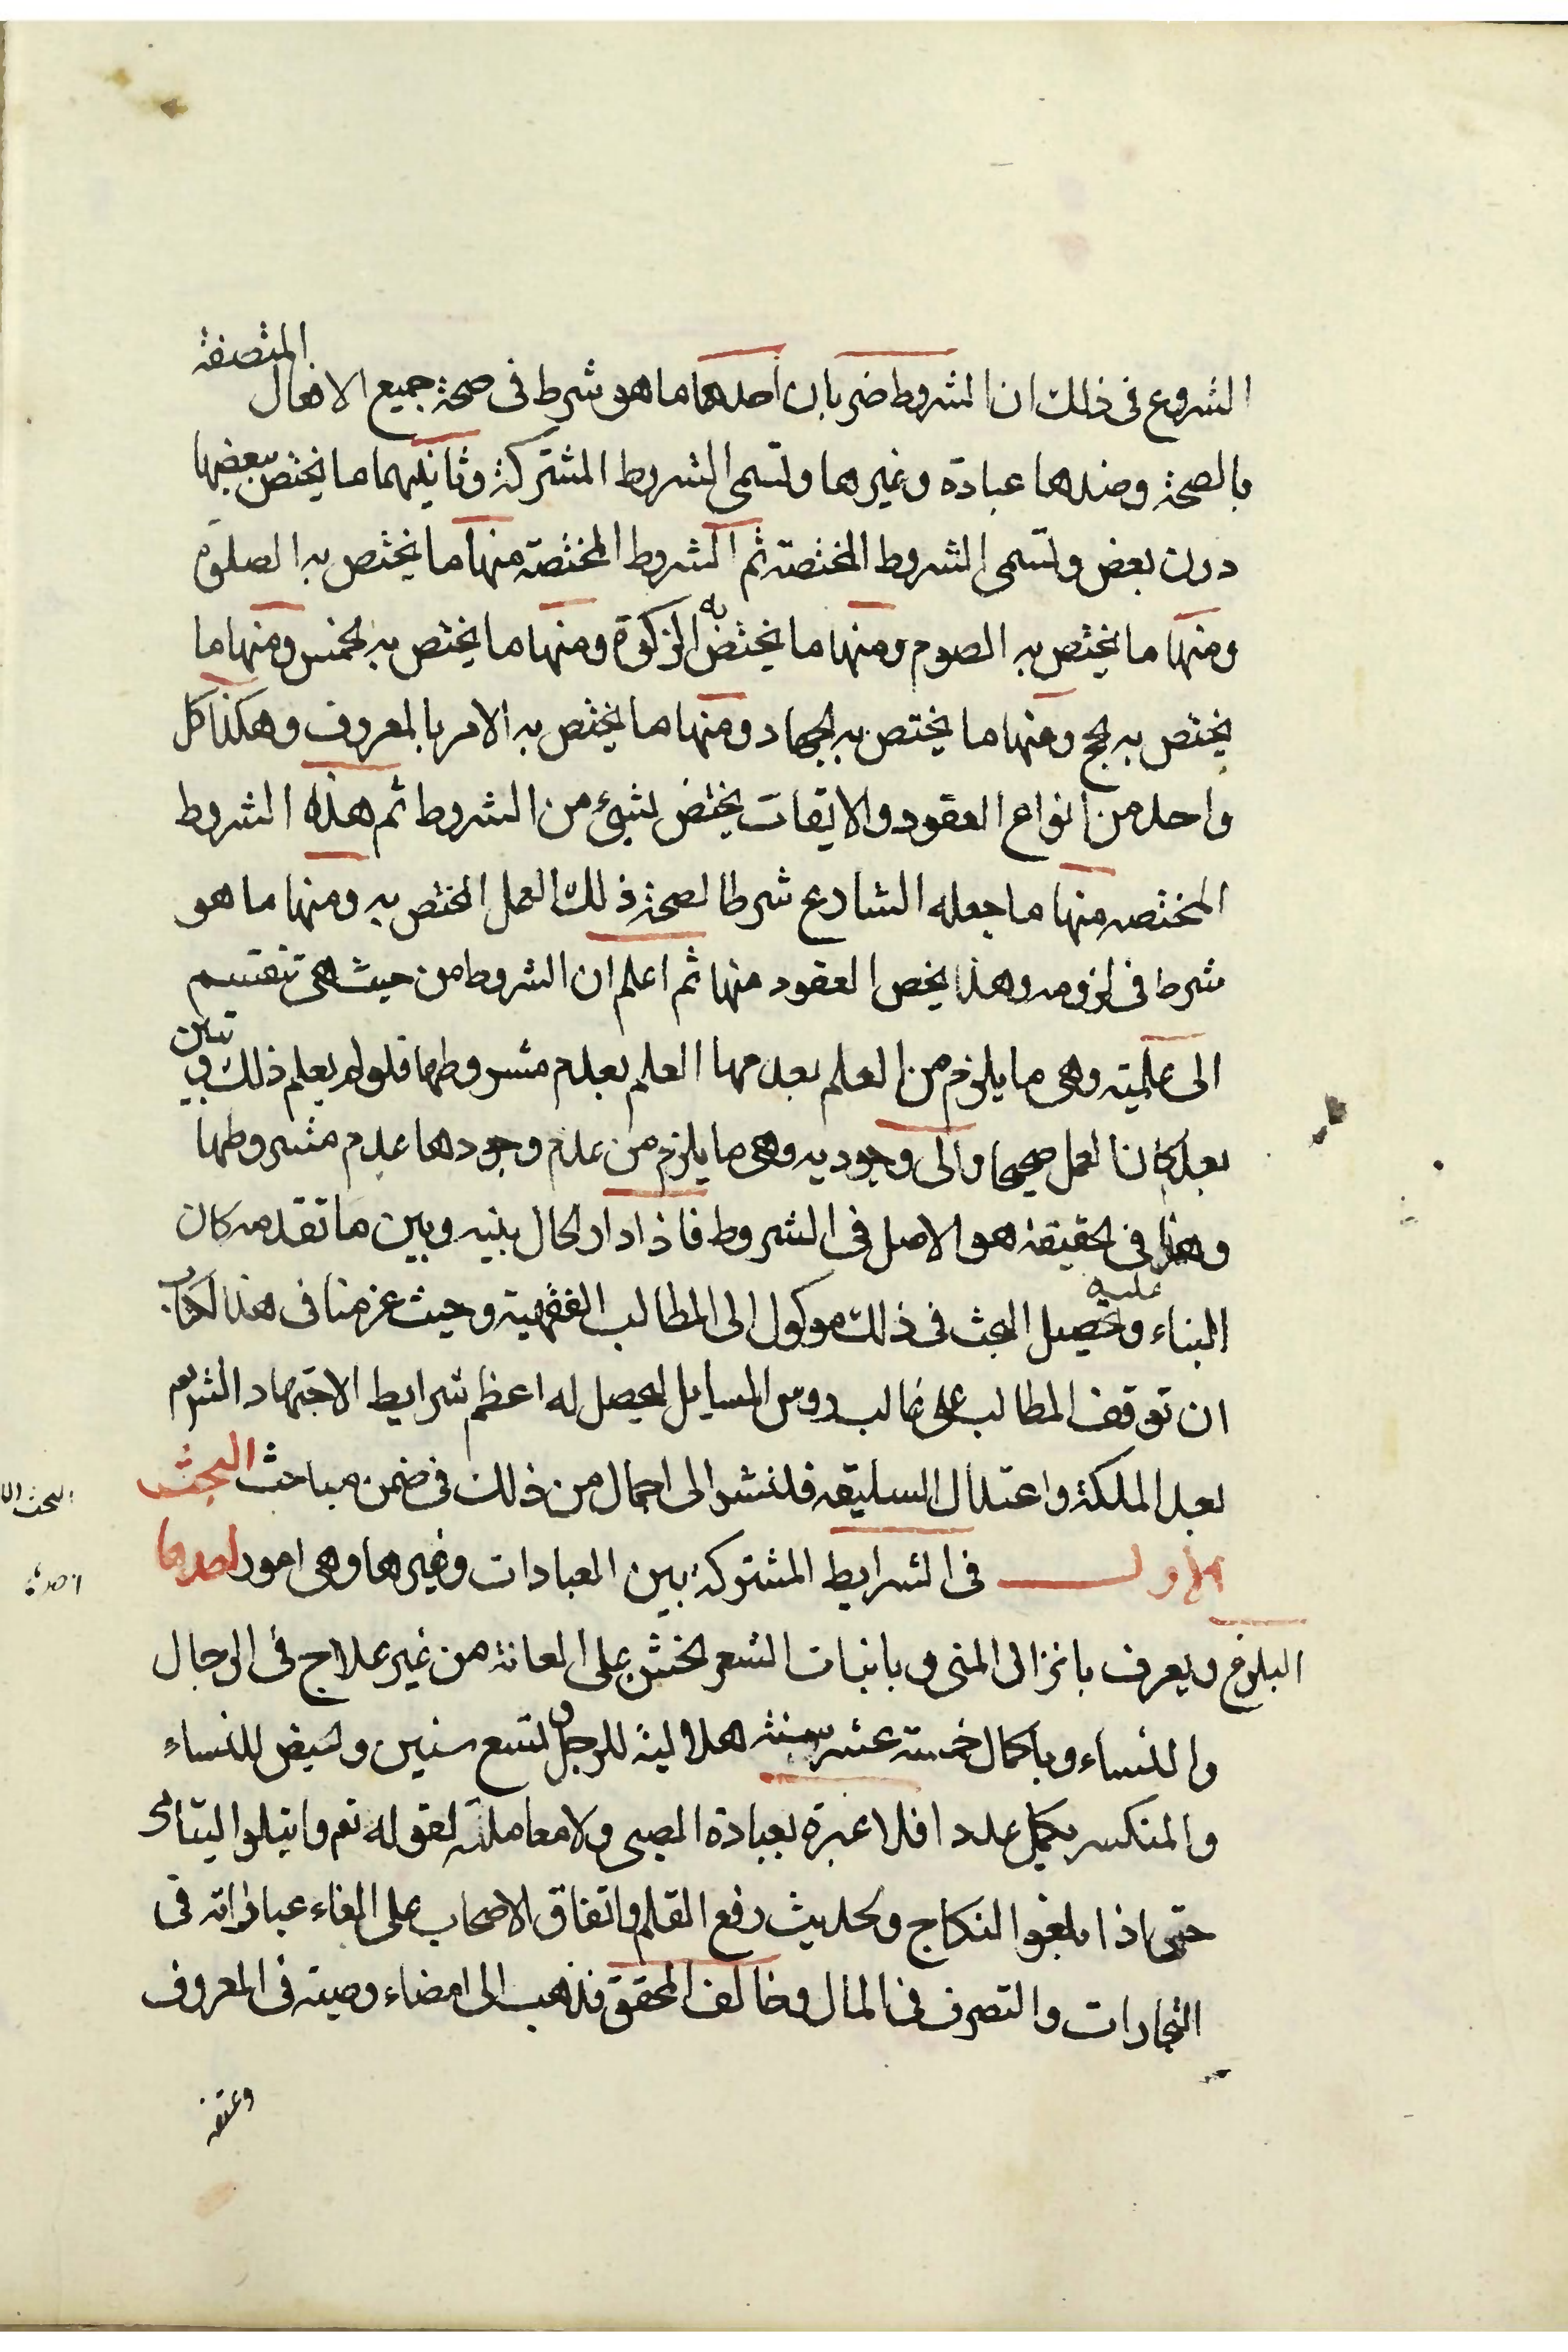 الشروع فى ذلك ان الشروط ضربان احدهما ما هو شرط فى صحة جميع الافعال المتصفة
بالصحة وضدها عبادة وغيرها وتسمى الشروط المشتركة وثانيهما ما يختص ببعضها
دون بعض وتسمى الشروط المختصة ثم الشروط المختصة منها ما يختص به الصلوة
ومنها ما يختص به الصوم ومنها ما يختص به الزكوة ومنها ما يختص به الخمس ومنها ما
يختص به الحج ومنها ما يختص به الجهاد ومنها ما يختص به الامر بالمعروف وهكذا كل
واحد من انواع العقود والايقات يختص بشىء من الشروط ثم هذه الشروط
المختصه منها ما جعله الشارع شرطا لصحة ذلك العمل المختص به ومنها ما هو
شرط فى لزومه وهذا يخص العقود منها ثم اعلم ان الشروط من حيث هى تنقسم
الى علميته وهى ما يلزم من العلم بعدمها العلم بعدم مشروطها فلو لم يعلم ذلك وتبين
بعد كان العمل صحيحا والى وجوديه وهى ما يلزم من عدم وجودها عدم مشروطها
وهذا فى الحقيقة هو الاصل فى الشروط فاذا دار الحال بينه وبين ما تقدمه كان
البناء عليه وتحصيل البحث فى ذلك موكول الى المطالب الفقهية وحيث عزمنا فى هذا الكتاب
ان توقف المطالب على غالب روس المسايل ليحصل له اعظم شرايط الاجتهاد
بعد الملكة واعتدال السليقه فلنشر الى اجمال من ذلك فى ضمن مباحث البحث
الاول فى الشرايط المشتركة بين العبادات وغيرها وهى امور احدها
البلوغ ويعرف بانزال المنى وبانبات الشعر الخشن على العانة من غير علاج فى الرجال
والنساء وباكمال خمسة عشر سنة هلالية للرجل وتسع سنين والحيض للنساء
والمنكسر يكمل عددا فلا عبرة بعبادة الصبى ولا معاملته لقوله تع وابتلوا اليتامى
حتى اذا بلغوا النكاح ولحديث رفع القلم واتفاق الاصحاب على الغاء عباراته فى
التجارات والتصرف فى المال وخالف المحقق فذهب الى امضاء وصيته فى المعروف
وعتقه